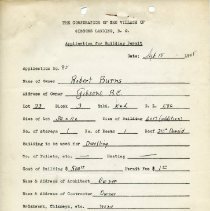 THE CORPORATION OF THE VILLAGE OF
GIBSONS LANDING, B. C.
Application for Building Permit
Date, Sept 15
Application No. 85
Name of Owner Robert Burns
Address of Owner Gibsons B.C.
Lot 23 Block 3
Size of Lot Size of Building
No. of storeys 1 No. of Rooms 1 Roof
Building to be used for Dwelling
No. of Toilets, etc. Heating
Cost of Building $ Permit Fee $
Name & Address of Architect Owner
Name & Address of Contractor Owner
Brickwork, Chimneys, etc.